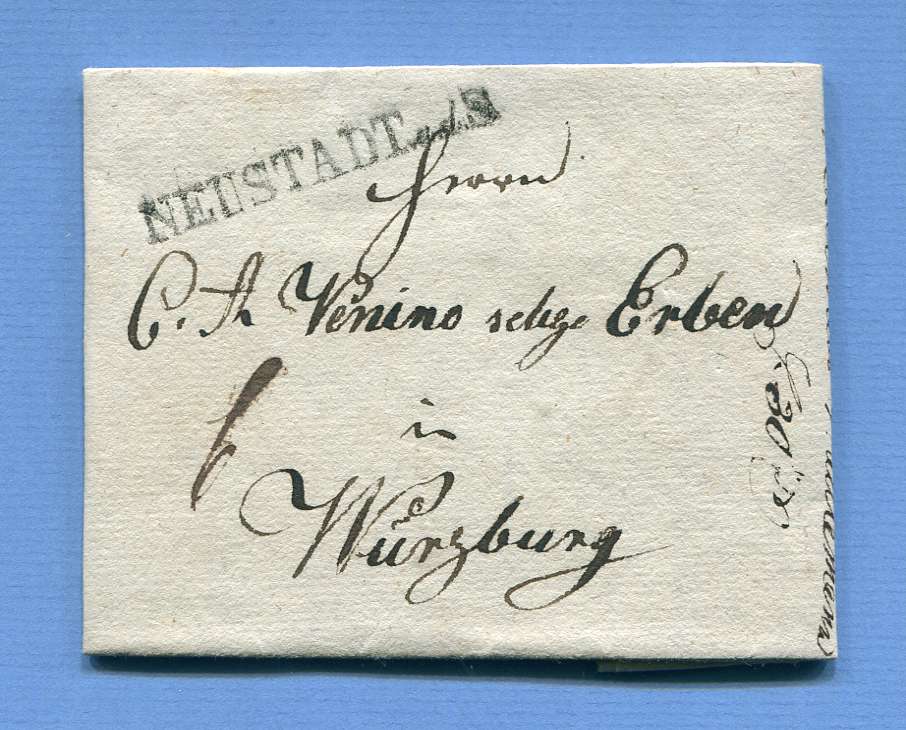 NEUSTADT a.d.S
Herrn
C. A. Venino selige Erben
in
Würzburg